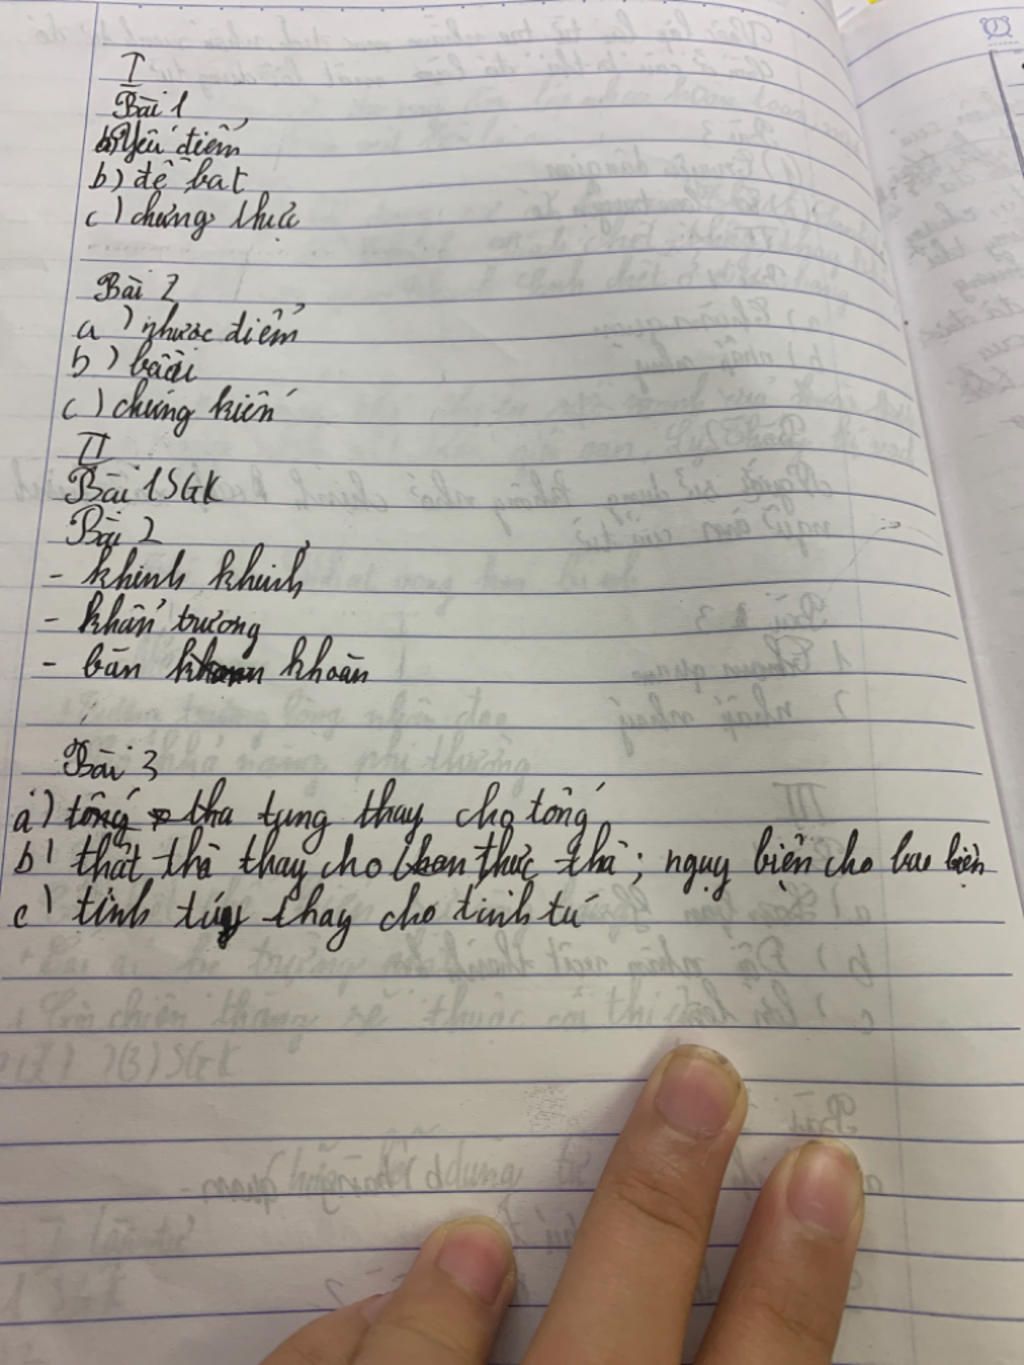 I
Bài 1
a) yếu điểm
b) đề bạt
c) chứng thực
Bài 2
a) nhược điểm
b)
c) chứng kiến
II
Bài 1 SGK
Bài 2
- khinh khỉnh
- khẩn trương
- băn khoăn
Bài 3
a) tống tha tung thay cho tống
b) thật thà thay cho thực thà; nguỵ biện cho bao biện
c) tinh tuý thay cho tinh tú